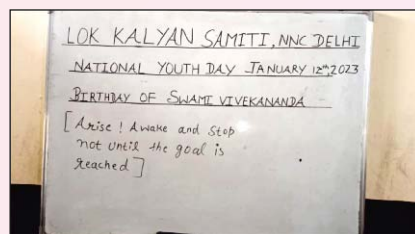 LOK KALYAN SAMITI, NNC DELHI
NATIONAL YOUTH DAY JANUARY 12th, 2023
BIRTHDAY OF SWAMI VIVEKANANDA
[Arise! Awake and stop
not until the goal is
reached]